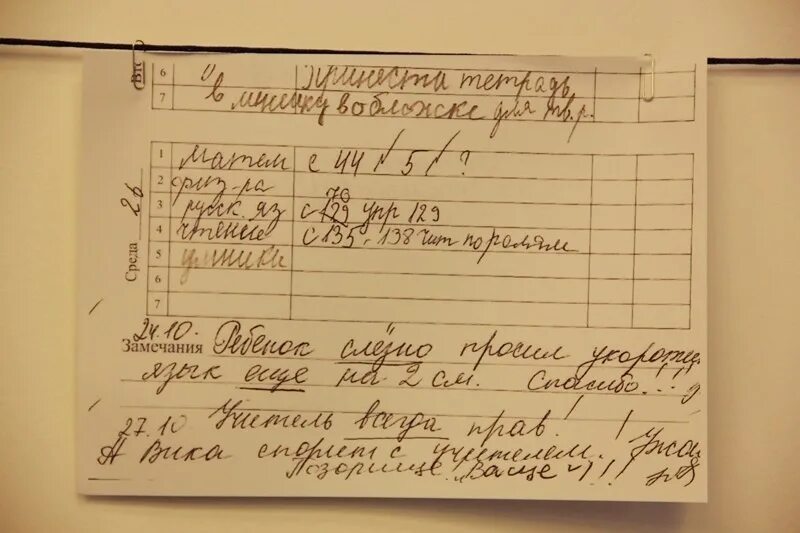 Вто
6 принести тетрадь
7 в линейку в обложке для тв.р.
Среда 26
1 матем с 44 / 5 / ?
2 физ-ра
76
3 русск. яз с 129 упр 129
4 чтение с 135 - 138 чит по ролям
5 умники
6
7
24.10.
Замечания Ребенок слёзно просил укоротить
язык еще на 2 см. Спасибо!!!
27.10 Учитель всегда прав! !
А Вика спорит с учителем. Ужа
Позорище! Ваще !!!